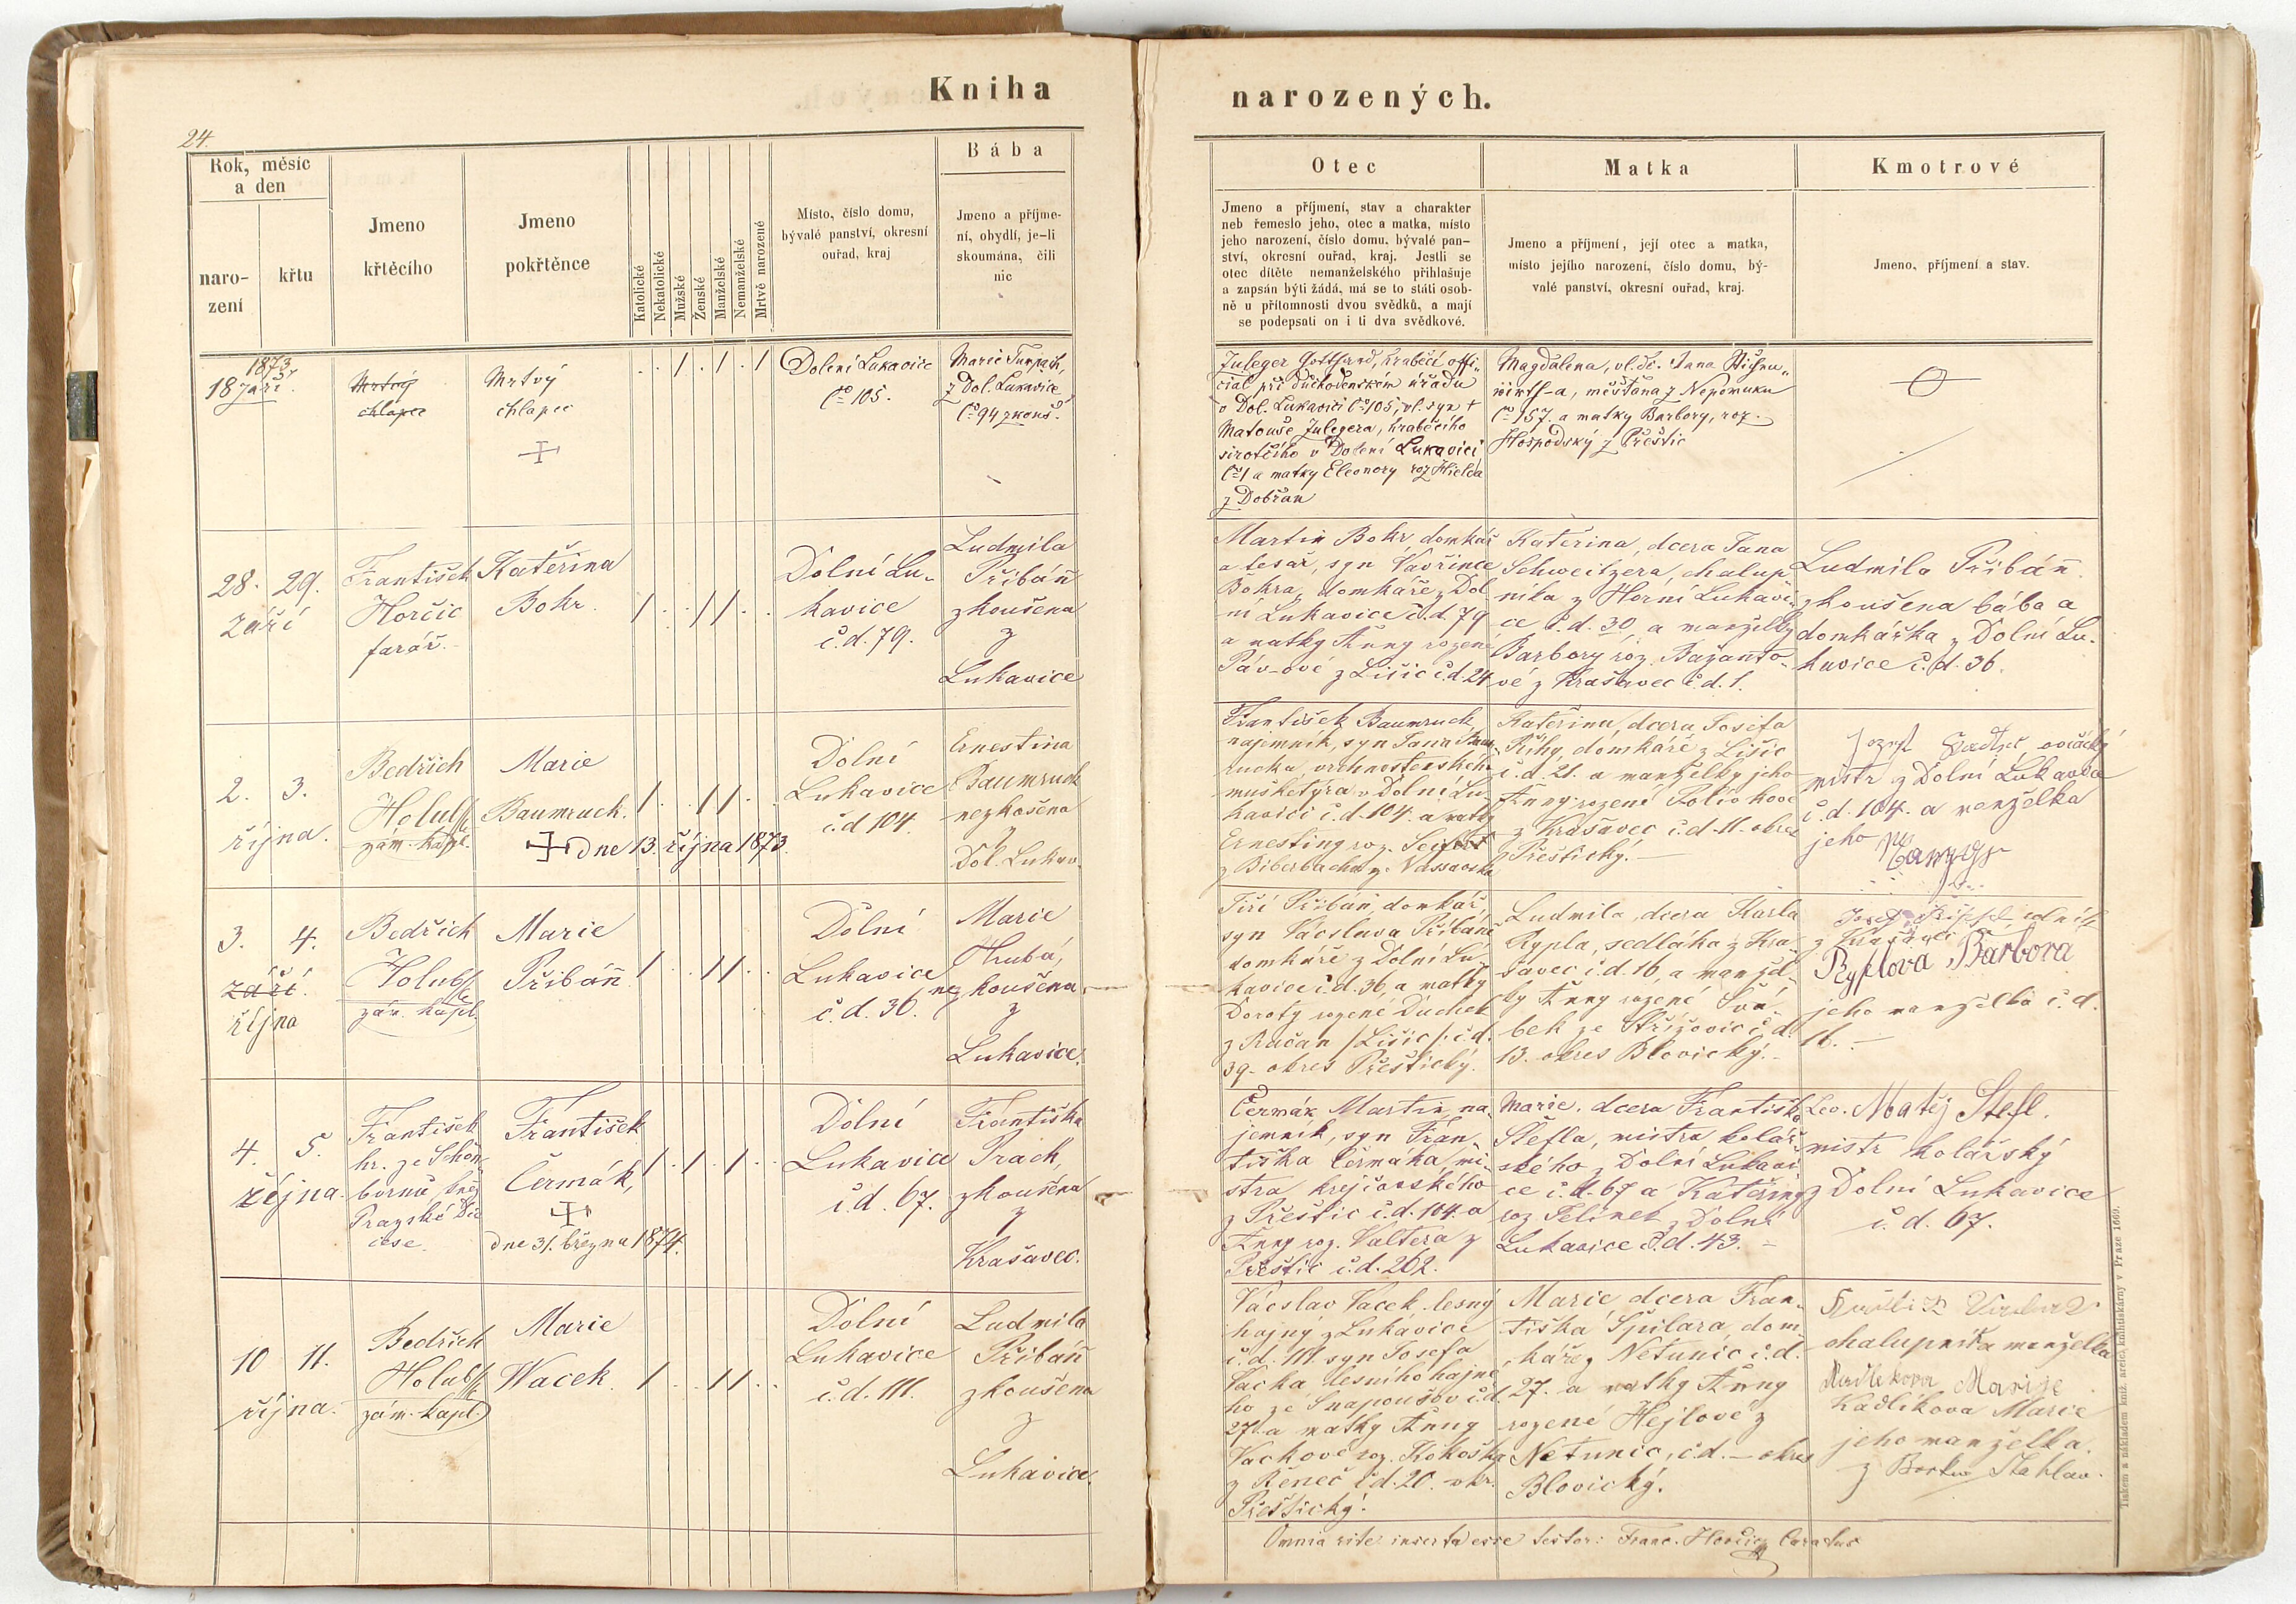 Kniha
narozených.
24.
Rok, měsíc
a den
naro-
zení
křtu
Jmeno
křtěcího
Jmeno
pokřtěnce
Katolické
Nekatolické
Mužské
Ženské
Manželské
Nemanželské
Mrtvě narozené
Místo, číslo domu,
bývalé panství, okresní
ouřad, kraj
Bába
Jmeno a příjme-
ní, obydlí, je-li
skoumána, čili
nic
Otec
Jmeno a příjmení, stav a charakter
neb řemeslo jeho, otec a matka, místo
jeho narození, číslo domu, bývalé pan-
ství, okresní ouřad, kraj. Jestli se
otec dítěte nemanželského přihlašuje
a zapsán býti žádá, má se to státi osob-
ně u přítomnosti dvou svědků, a mají
se podepsati on i ti dva svědkové.
Matka
Jmeno a příjmení, její otec a matka,
místo jejího narození, číslo domu, bý-
valé panství, okresní ouřad, kraj.
Kmotrové
Jmeno, příjmení a stav.
1873
18 září.
Mrtvý
chlapec
Mrtvý
chlapec
Dolení Lukavice
Čo 105.
Marie
z Dol. Lukavice
Čo 94 zkouš.
Juleger Gotthard, hraběcí offi-
ciál při důchodenském úřadu
v Dol. Lukavici Čo 105, vl. syn +
Matouše Julegera, hraběcího
sirotčího v Dolení Lukavici
Čo 1 a matky Eleonory roz.
z Dobřan
Magdalena, vl. dc. Jana
měšťana z Nepomuku
Čo 157. a matky Barbory, roz.
Hospodský z Přeštic
28. 29.
září
František
Horčic
farář.
Kateřina
Bohr.
Dolní Lu-
kavice
č.d. 79.
Ludmila
Přibáň
zkoušena
z
Lukavice
Martin Bohr domkář
a tesař, syn Vavřince
Bohra, domkáře z Dol
ní Lukavice č.d. 79
a matky Anny rozené
Páv-ové z Lišic č.d. 24
Kateřina, dcera Jana
Schweitzera, chalup
níka z Horní Lukavi-
ce č.d. 30 a manželky
Barbory roz. Bažanto-
vé z Krašavec č.d. 1.
Ludmila Přibáň
zkoušena bába a
domkářka z Dolní Lu-
kavice č.d. 36.
2. 3.
října.
Bedřich
Holub
zám. kapl.
Marie
Baumruck.
dne 13. října 1873.
Dolní
Lukavice
č.d 104.
Ernestina
Baumruck
nezkošena
z
Dol. Lukav.
František Baumruck,
najemník, syn Jana Baum
rucka, vrchnostenského
mušketýra v Dolní Lu-
kavici č.d. 104. a matky
Ernestiny roz. Seifert
z Biberbachu z Nassavska
Kateřina, dcera Josefa
Říhy, domkáře z Lišic
č.d. 21. a manželky jeho
Anny rozené
z Krašavec č.d. 11. okres
Přeštický.
mistr z Dolní Lukavice
č.d. 104. a manželka
jeho
3. 4.
září.
října
Bedřich
Holub
zám. kapl.
Marie
Přibáň
Dolní
Lukavice
č.d. 36.
Marie
Hrubá,
nezkoušena
z
Lukavice.
Jiří Přibáň, domkář,
syn Václava Přibáně
domkáře z Dolní Lu-
kavice č.d. 36, a matky
Doroty rozené Duchek
z Ručan /Lišic/ č.d.
39. okres Přeštický.
Ludmila, dcera Karla
Rypla, sedláka z Kra-
šavec č.d. 16, a manžel-
ky Anny rozené Šva-
bek ze Střížovic č.d.
13. okres Blovický.
z Krašavec
Ryplova Barbora
jeho manželka č.d.
16.
4. 5.
října.
František
hr. ze Schön-
bornů, kněz
Pražské Die
cése.
František
Čermák,
dne 31. března 1874.
Dolní
Lukavice
č.d. 67.
Františka
Prach,
zkoušena
z
Krašavec.
Čermák Martin, na-
jemník, syn Fran-
tiška Čermáka, mi-
stra krejčovského
z Přeštic č.d. 104. a
Anny roz. Valtera z
Přeštic č.d. 262.
Marie, dcera Františka
Štefla, mistra kolář-
ského z Dolní Lukavi
ce č.d. 67 a Kateřiny
roz Jelínek z Dolní
Lukavice č.d. 43.
Matěj Štefl.
mistr kolářský
z Dolní Lukavice
č.d. 67.
10 11.
října.
Bedřich
Holub
zám. kapl.
Marie
Wacek.
Dolní
Lukavice
č.d. 111.
Ludmila
Přibáň
zkoušena
z
Lukavice.
Václav Vacek lesný
hajný z Lukavice
č.d. 111. syn Josefa
Vacka lesního hajné
ho ze Snapoušov č.d.
27. a matky Anny
Vackové roz. Kokoška
z Řeneč č.d. 20. okr.
Přeštický.
Marie dcera Fran-
tiška Špilara, dom-
káře z Netunic č.d.
27. a matky Anny
rozené Hejlové z
Netunic, č.d. — okres
Blovický.
chalupníka manželka
Kadlekova Marije
Kadlíkova Marie
jeho manželka.
z Štáhlav.
Omnia rite inserta esse testor: Franc. Horčic Curatus
Tiskem a nákladem kniž. arcib. knihtiskárny v Praze 1869.